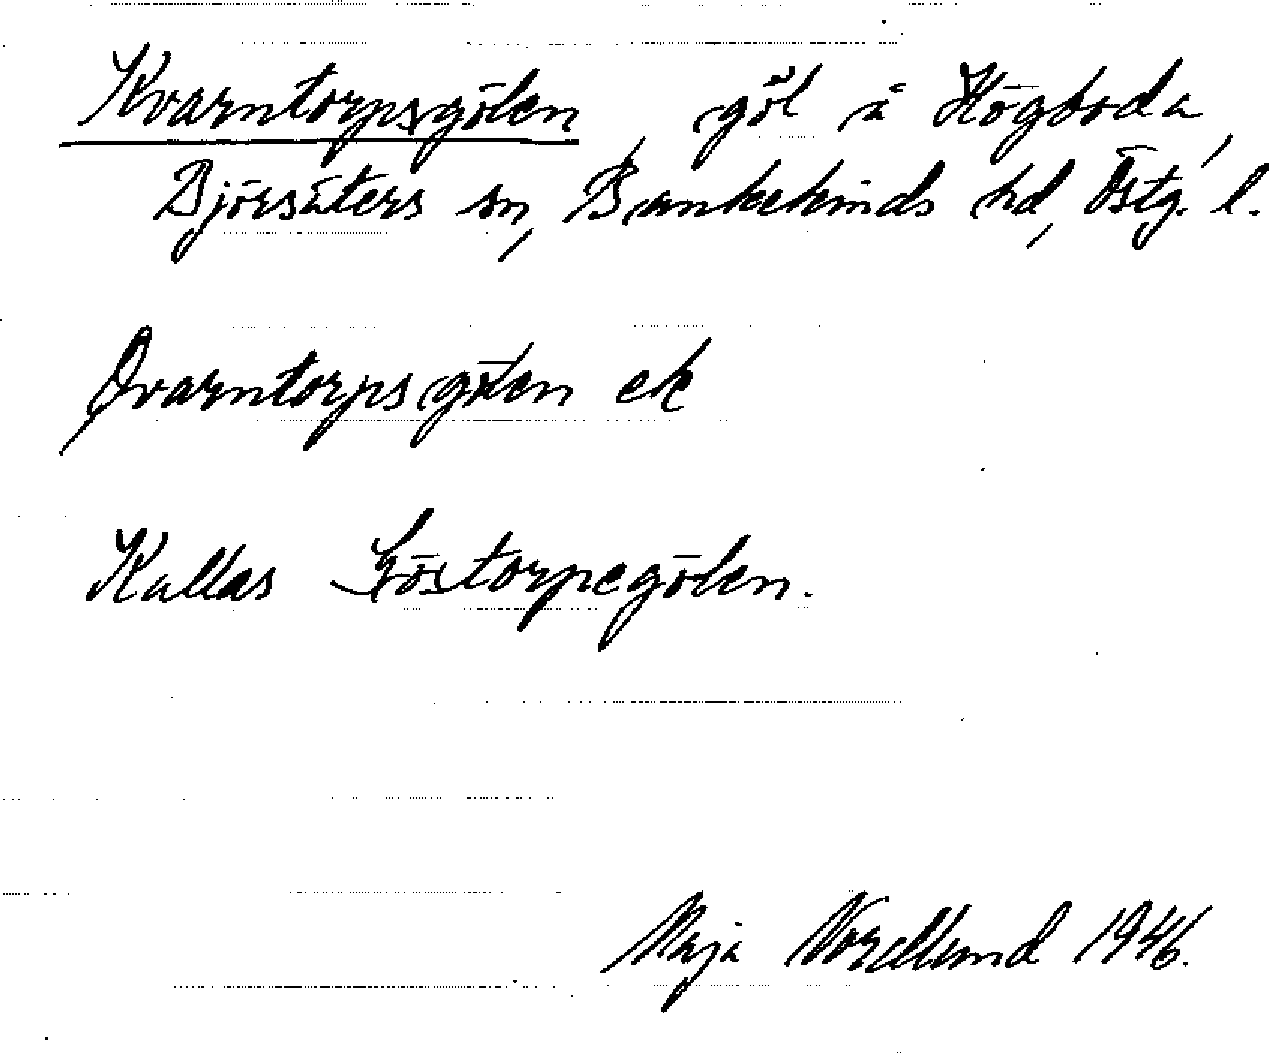 Kvarntorpsgölen, göl å Högboda,
Björsäters sn, Bankekinds hd, Östg. l.
Qvarntorpsgölen ek
Kallas Göstorpegölen.
Maja Nordlund 1946.